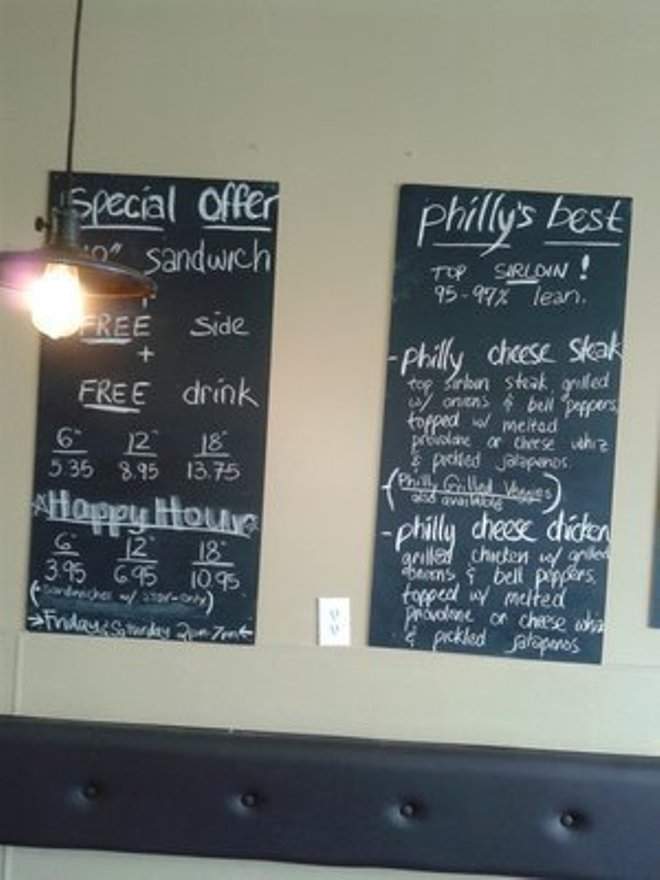 Special Offer
sandwich
+
FREE side
+
FREE drink
6" 12" 18"
5.35 8.95 13.75
Happy Hour
6" 12" 18"
3.95 6.95 10.95
(*sandwiches w/ only)
→Friday & Saturday 2pm-7pm←
philly's best
TOP SIRLOIN!
95-97% lean.
-philly cheese steak
top sirloin steak, grilled
w/ onions & bell peppers,
topped w/ melted
provolone or cheese whiz
& pickled jalapenos.
(Philly Grilled Veggies
also available)
-philly cheese chicken
grilled chicken w/ grilled
onions & bell peppers,
topped w/ melted
provolone or cheese whiz
& pickled jalapenos